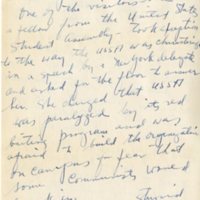 One of the visitors
a fellow from the United State
Student Assembly - took exception
to the way the USSA was
in a speech by a New York delegate
and asked for the floor to answer
her. She charged that USSA
was paralyzed by its red
baiting program and was
afraid to build the organization
on campus for fear that
some Communists would